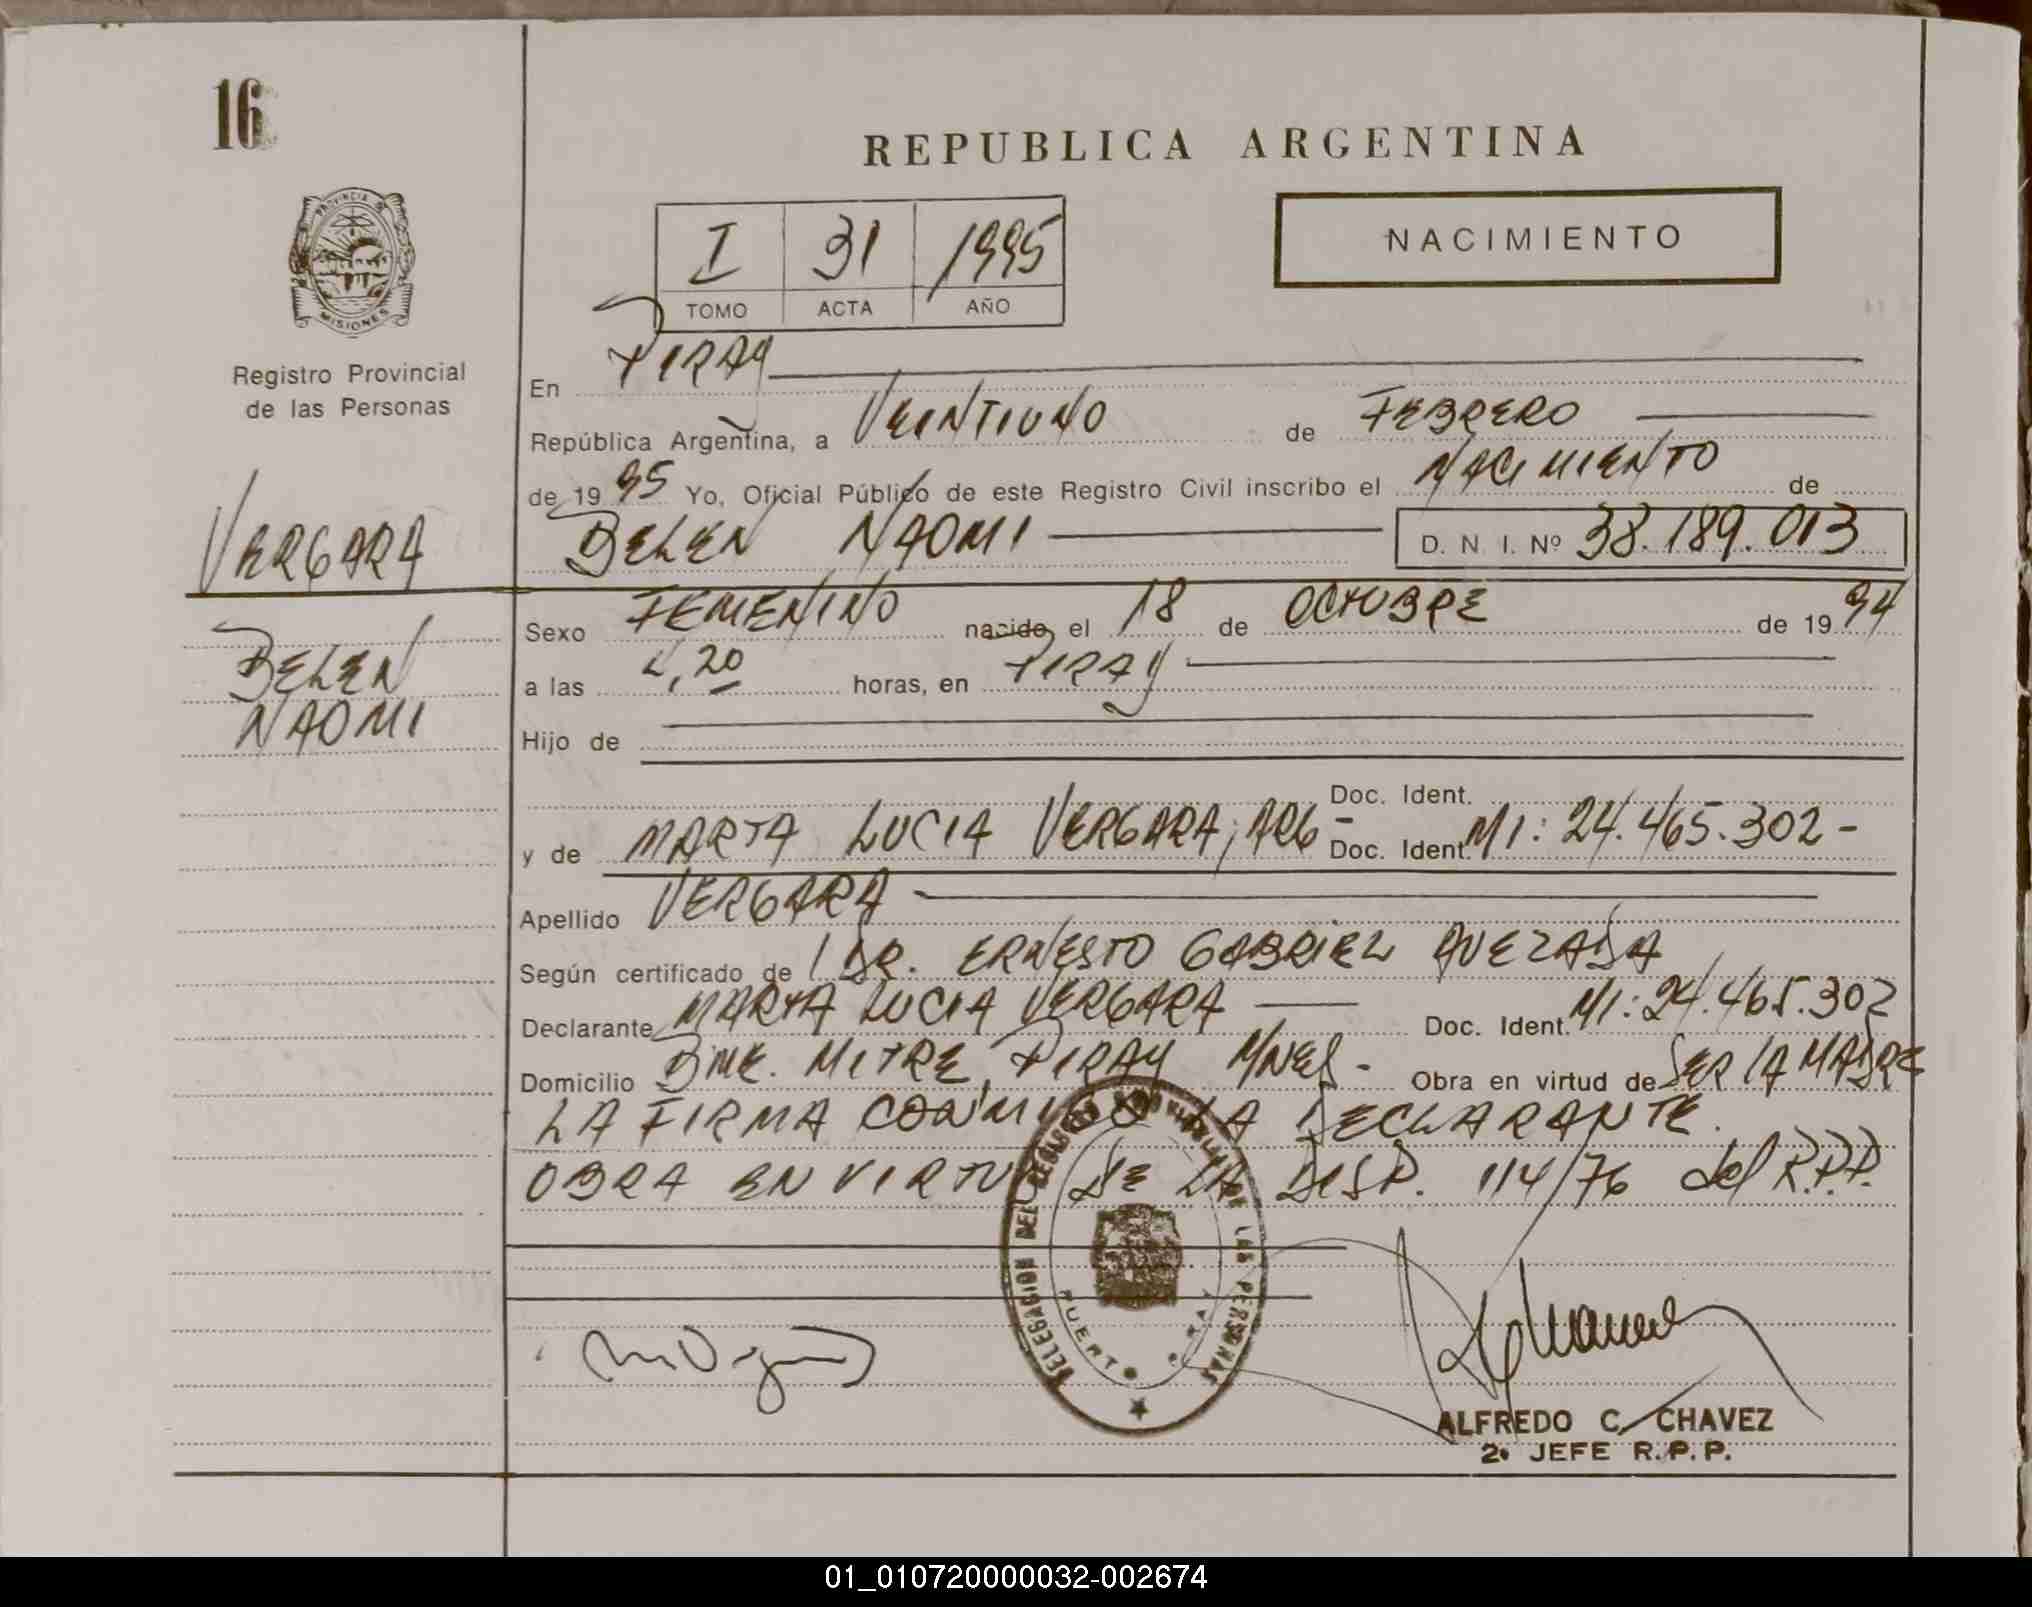 16
REPUBLICA ARGENTINA
PROVINCIA DE
MISIONES
I 31 1995
TOMO ACTA AÑO
NACIMIENTO
Registro Provincial
de las Personas
VERGARA
BELEN
NAOMI
En PIRAY
República Argentina, a VEINTIUNO de FEBRERO
de 1995 Yo, Oficial Público de este Registro Civil inscribo el NACIMIENTO de
BELEN NAOMI D. N. I. Nº 38.189.013
Sexo FEMENINO nacido el 18 de OCTUBRE de 1994
a las 4,20 horas, en PIRAY
Hijo de
Doc. Ident.
y de MARTA LUCIA VERGARA, ARG - Doc. Ident. MI: 24.465.302-
Apellido VERGARA
Según certificado de DR. ERNESTO GABRIEL QUEZADA
Declarante MARTA LUCIA VERGARA Doc. Ident. MI: 24.465.302
Domicilio BME. MITRE, PIRAY MNES- Obra en virtud de SER LA MADRE
LA FIRMA CONMIGO LA DECLARANTE.
OBRA EN VIRTUD DE LA DISP. 114/76 del R.P.P.
DELEGACION DEL REGISTRO PROVINCIAL DE LAS PERSONAS
PUERTO PIRAY
ALFREDO C. CHAVEZ
2º JEFE R.P.P.
01_010720000032-002674